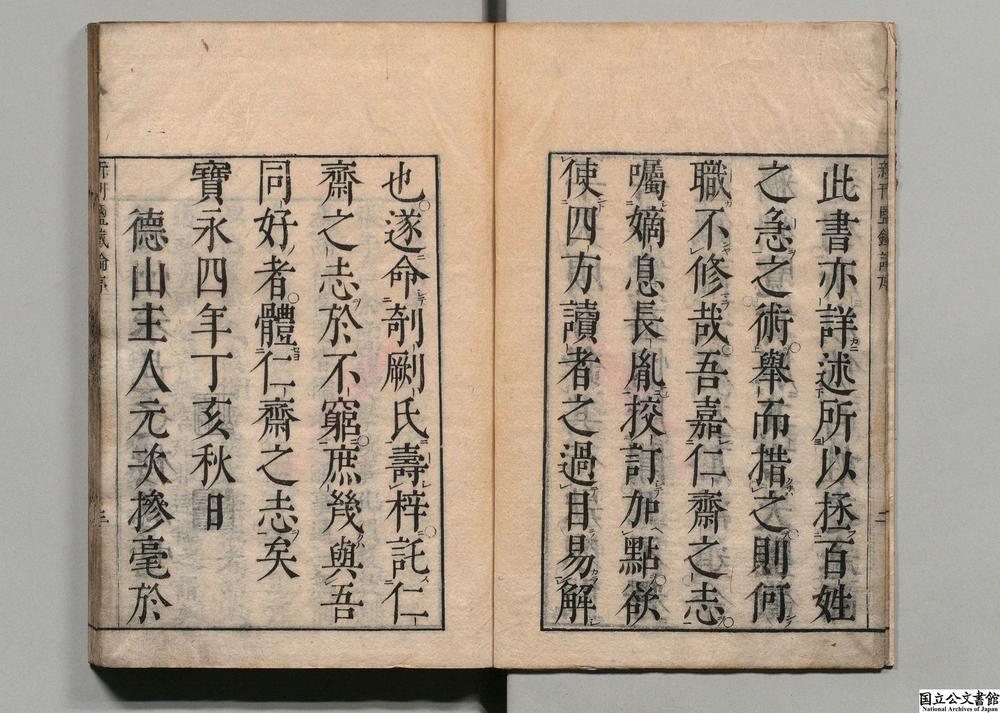 此書亦詳述所以拯百姓
之急之術舉而措之則何
職不修哉吾嘉仁齋之志
囑嫡息長胤挍訂加點欲
使四方讀者之過目易解
也遂命剞劂氏壽梓託仁
齋之志於不窮庶幾與吾
同好者體仁齋之志矣
寶永四年丁亥秋日
德山主人元次摻毫於
新刊鹽鐵論序
二
新刊鹽鐵論序
三
国立公文書館
National Archives of Japan